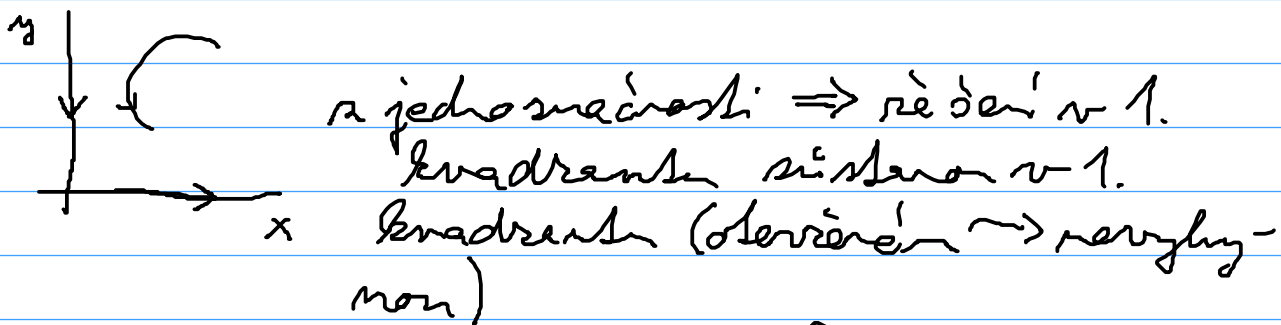 y
z jednoznačnosti ⇒ řešení v 1.
kvadrantu zůstanou v 1.
x kvadrantu (otevřeném ⇝ nevyhy-
nou)